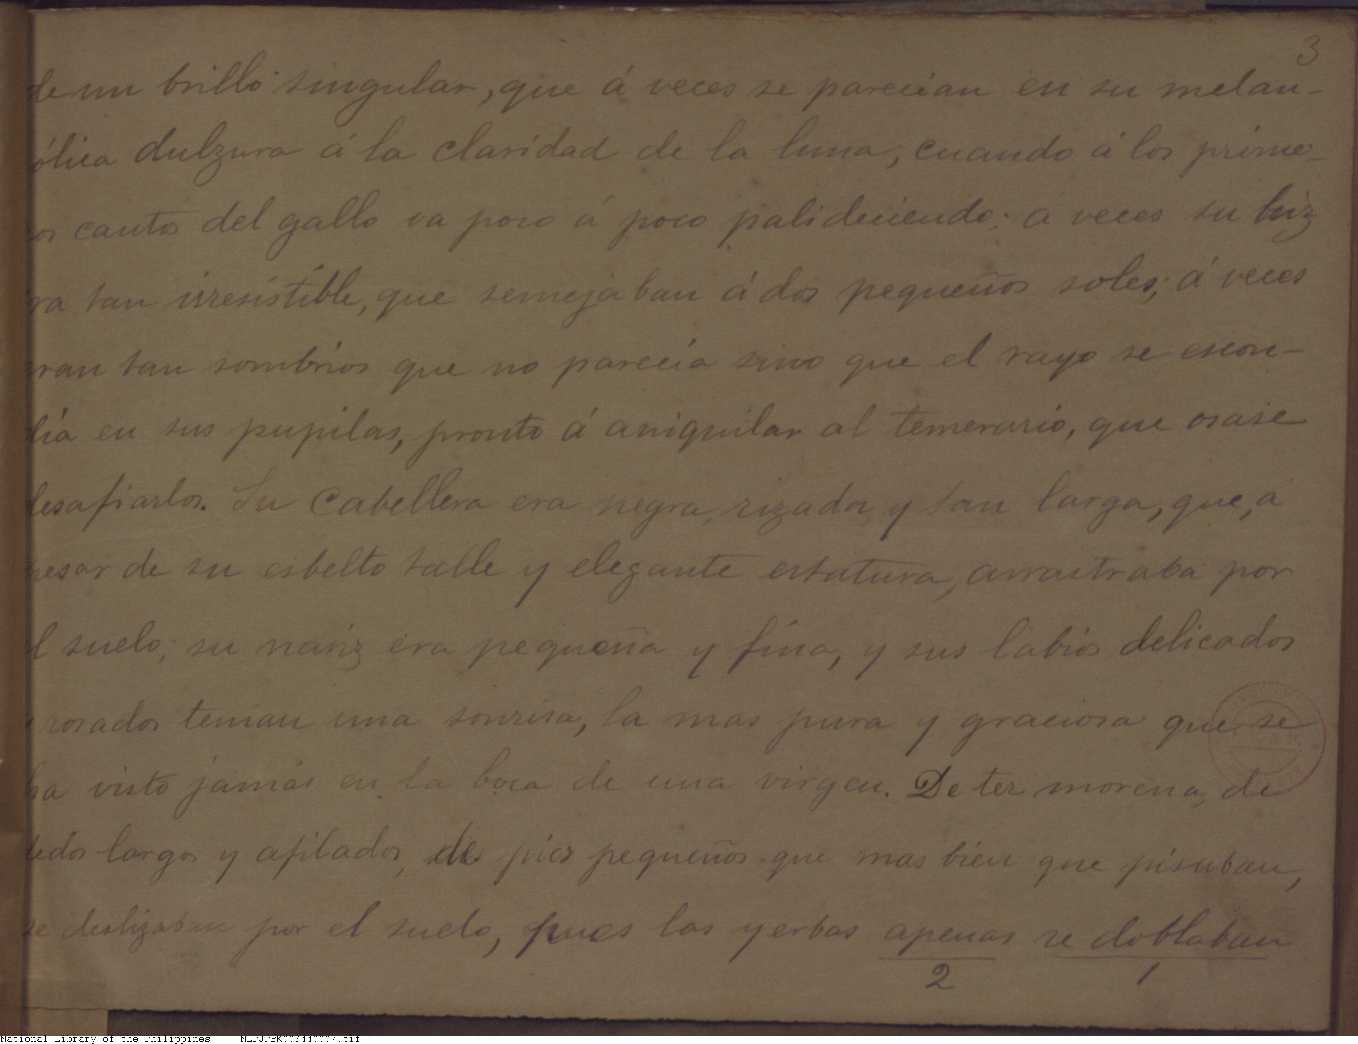 3
de un brillo singular, que á veces se parecían en su melan-
ólica dulzura á la claridad de la luna, cuando á los prime-
ros cantos del gallo va poco á poco palideciendo; a veces su luz
era tan irresistible, que semejaban á dos pequeños soles; á veces
eran tan sombríos que no parecía sino que el rayo se escon-
día en sus pupilas, pronto á aniquilar al temerario, que osase
desafiarlos. Su cabellera era negra, rizada, y tan larga, que, á
pesar de su esbelto talle y elegante estatura, arrastraba por
el suelo; su nariz era pequeña y fina, y sus labios delicados
y rosados tenian una sonrisa, la mas pura y graciosa que se
ha visto jamás en la boca de una virgen. De tez morena, de
dedos largos y afilados, de pies pequeños que mas bien que pisaban,
se deslizaban por el suelo, pues las yerbas apenas se doblaban
2 1
National Library of the Philippines